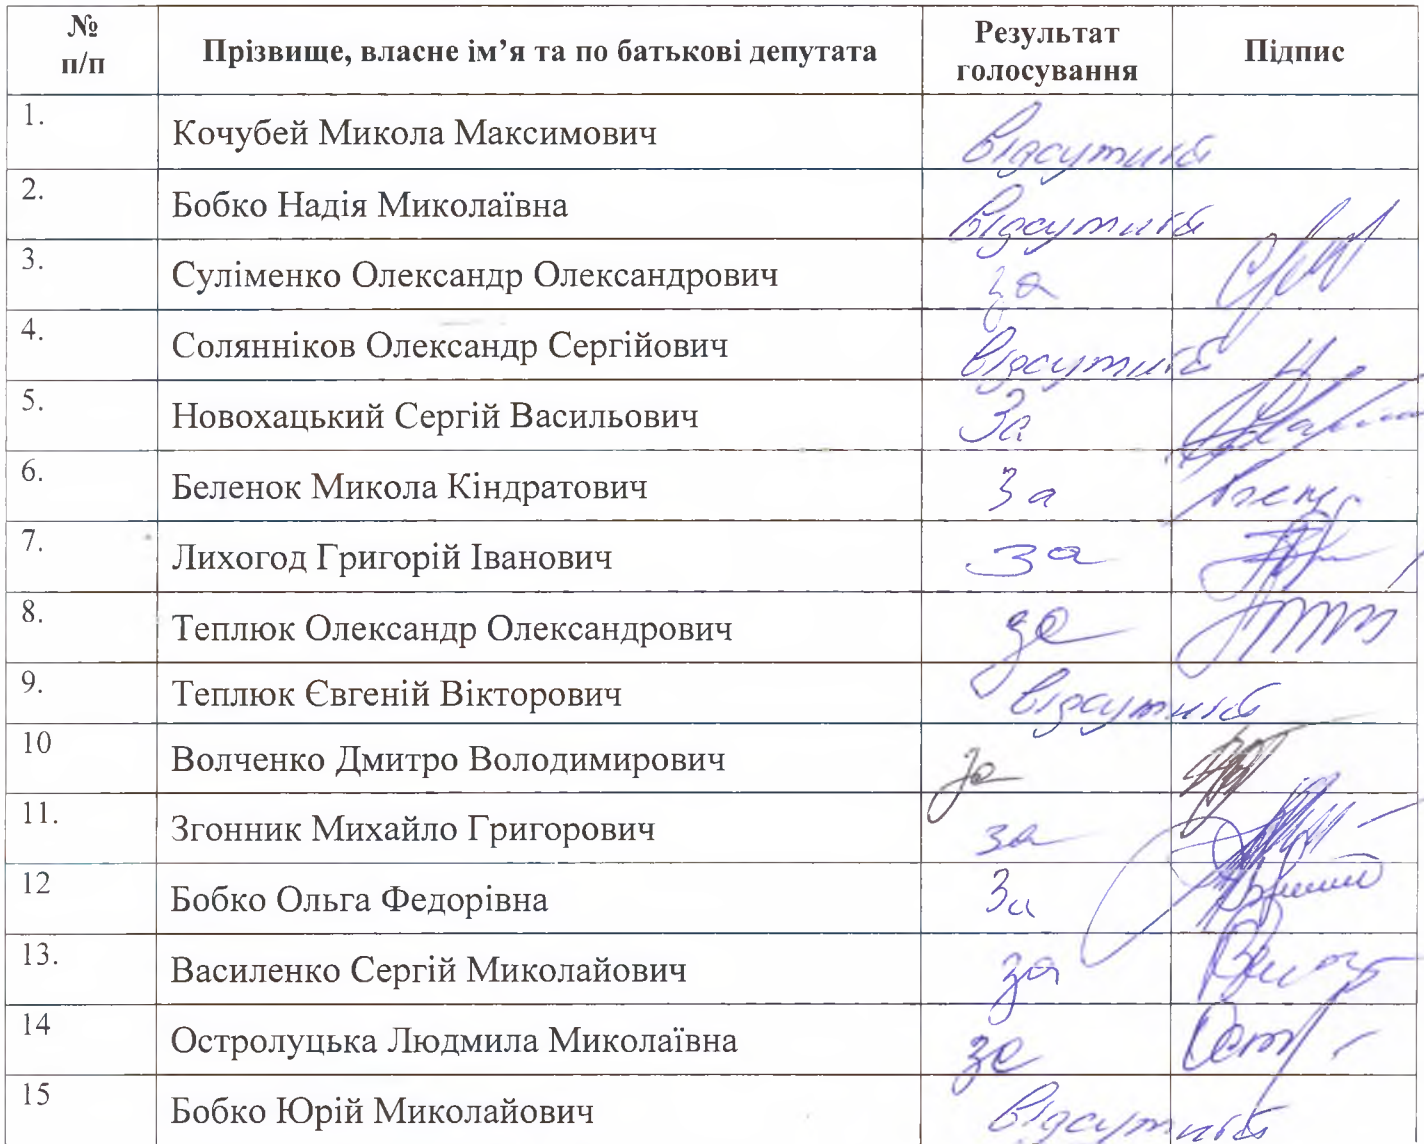 № п/п Прізвище, власне ім’я та по батькові депутата Результат голосування Підпис
1. Кочубей Микола Максимович відсутній
2. Бобко Надія Миколаївна відсутній
3. Суліменко Олександр Олександрович за
4. Солянніков Олександр Сергійович відсутній
5. Новохацький Сергій Васильович За
6. Беленок Микола Кіндратович За
7. Лихогод Григорій Іванович за
8. Теплюк Олександр Олександрович за
9. Теплюк Євгеній Вікторович відсутній
10 Волченко Дмитро Володимирович за
11. Згонник Михайло Григорович за
12 Бобко Ольга Федорівна За
13. Василенко Сергій Миколайович за
14 Остролуцька Людмила Миколаївна за
15 Бобко Юрій Миколайович відсутній